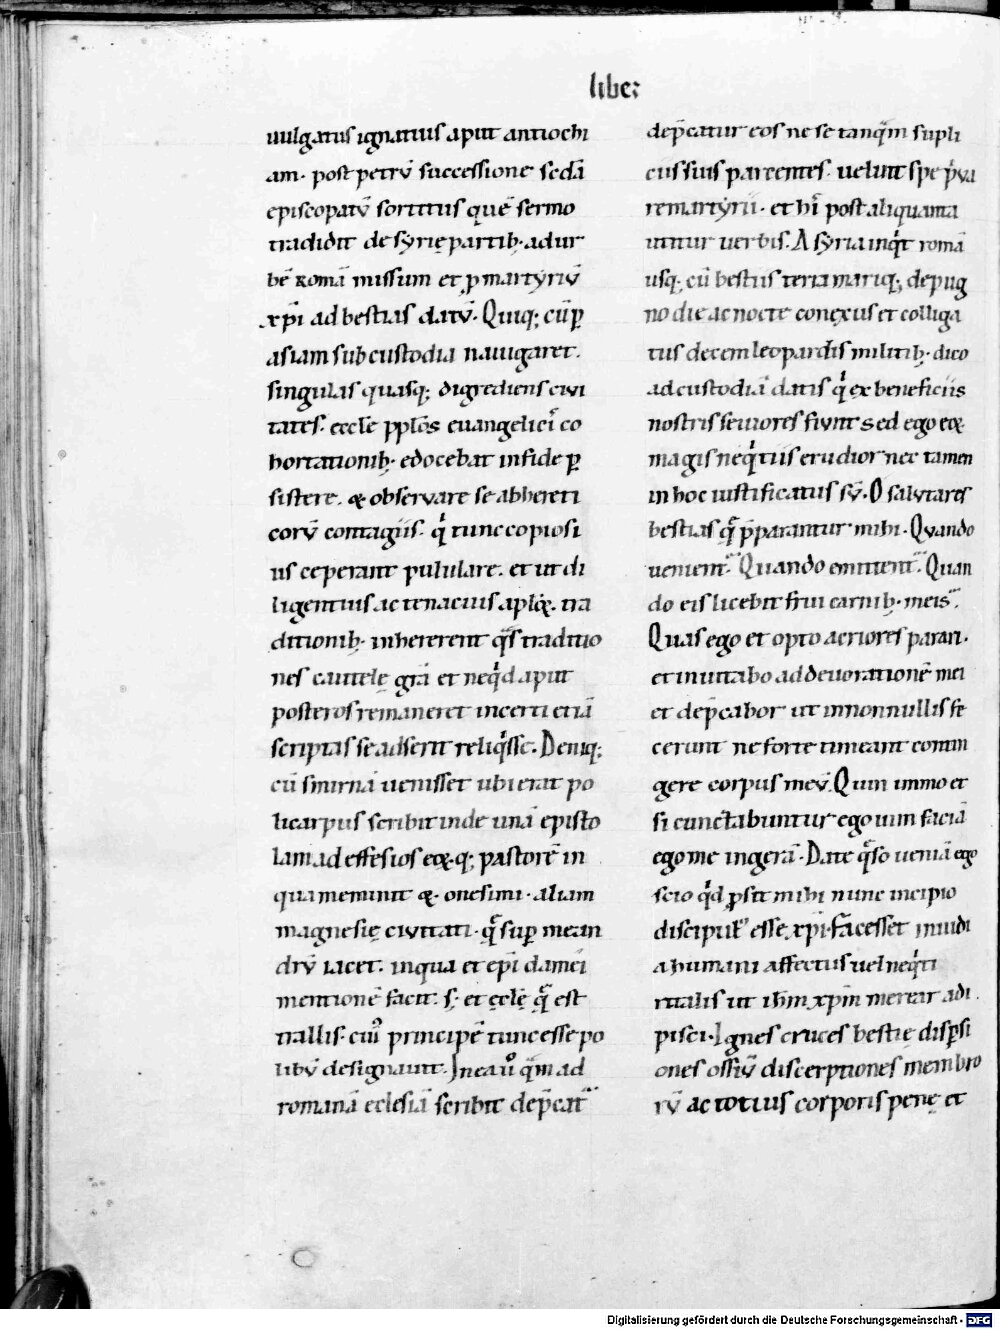 liber
uulgatus ignatius aput antiochi
am· post petrū successione scdā
episcopatū sortitus quē sermo
tradidit de syrię partib; adur
bē romā missum et ꝓ martyriū
xp̄i ad bestias datū· Quiq; cū p̲
asiam sub custodia nauigaret·
singulas quasq; digrediens civi
tates· ecclę pplōs euangelici co
hortationib; edocebat in fide p̲
sistere· & observare se ab hereti
corū contagiis· qͥ tunc copiosi
us ceperant pululare· et ut di
ligentius ac tenacius aplꝝ· tra
ditionib; inhererent qͣs traditio
nes cautelę grā et neqͥd aput
posteros remaneret incerti etiā
scriptas se adserit reliqͥsse· Deniq;
cū smirnā uenisset ubi erat po
licarpus scribit inde unā episto
lam ad effesios eoꝝ· q; pastorē in
qua meminit &· onesimi· aliam
magnesię civitati· qͣ sup̲ mean
drū iacet· in qua et ep̄i damei
mentionē facit· s; et ecclę qͣ est
trallis· cui⁹ principē tunc esse po
libū designauit· In ea ū qͣm ad
romanā eclesiā scribit dep̄cat᷑
dep̄catur eos ne se tanqͣm supli
ciis suis parcentes· uelint spe pͥva
re martyrii· et hi post aliquanta
utitur uerbis· A syria inqͥt romā
usq; cū bestiis terra mariq; depug
no die ac nocte conexus et colliga
tus decem leopardis militib; dico
ad custodiā datis qͥ ex beneficiis
nostris seuiores fiunt sed ego eoꝝ
magis neqͥtiis erudior nec tamen
in hoc iustificatus sū· O salutares
bestias qͣ p̄parantur mihi· Quando
uenient᷑ Quando emittent᷑ Quan
do eis licebit frui carnib; meis᷑
Quas ego et opto acriores parari·
et inuitabo ad deuorationē mei
et dep̄cabor ut in nonnullis fe
cerunt ne forte timeant contin
gere corpus meū· Quin immo et
si cunctabuntur ego uim faciā
ego me ingerā· Date qͣso ueniā ego
scio qͥd ꝓsit mihi nunc incipio
discipul᷑ esse xp̄i· facesset inuidi
a humani affectus uel neqͥti
ritalis ut ih̄m xp̄m merear adi
pisci· Ignes cruces bestię disp̲si
ones ossiū discerptiones membro
rū ac totius corporis penę et
Digitalisierung gefördert durch die Deutsche Forschungsgemeinschaft - DFG